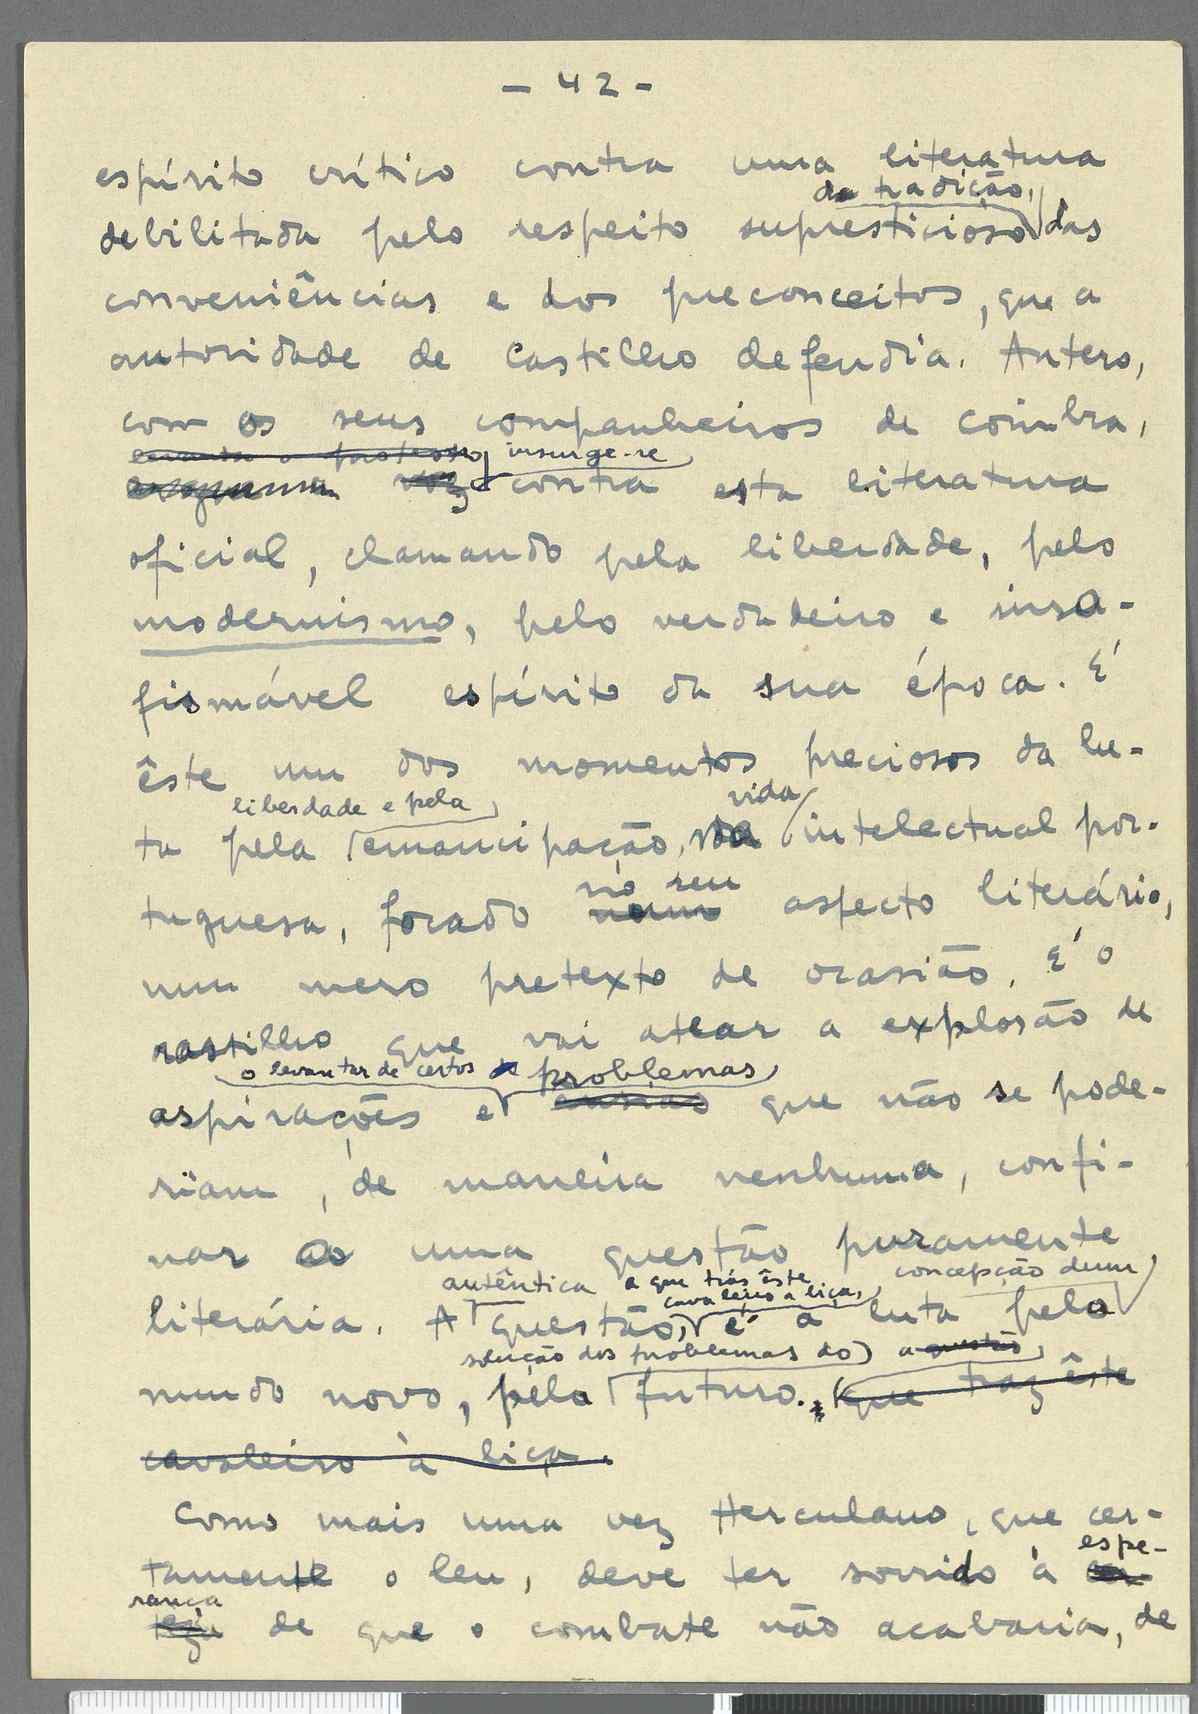 - 42 -
espírito crítico contra uma literatura
da tradição,
debilitada pelo respeito supresticioso das
conveniências e dos preconceitos, que a
autoridade de Castilho defendia. Antero,
com os seus companheiros de Coimbra,
levanta o protesto insurge-se
voz contra esta literatura
oficial, clamando pela liberdade, pelo
modernismo, pelo verdadeiro e insa-
fismável espírito da sua época. É
êste um dos momentos preciosos da lu-
liberdade e pela vida
ta pela emancipação, da intelectual por-
no seu
tuguesa, focado num aspecto literário,
num mero pretexto de ocasião. É o
rastilho que vai atear a explosão de
o levantar de certos problemas
aspirações e que não se pode-
riam, de maneira nenhuma, confi-
nar a uma questão puramente
autêntica a que trás êste concepção dum
cavaleiro a liças
literária. A questão, é a luta pela
solução dos problemas do a questão
mundo novo, pelo futuro. que traz êste
cavaleiro à liça.
Como mais uma vez Herculano, que cer-
espe-
tamente o leu, deve ter sorrido à
rança
de que o combate não acabaria, de